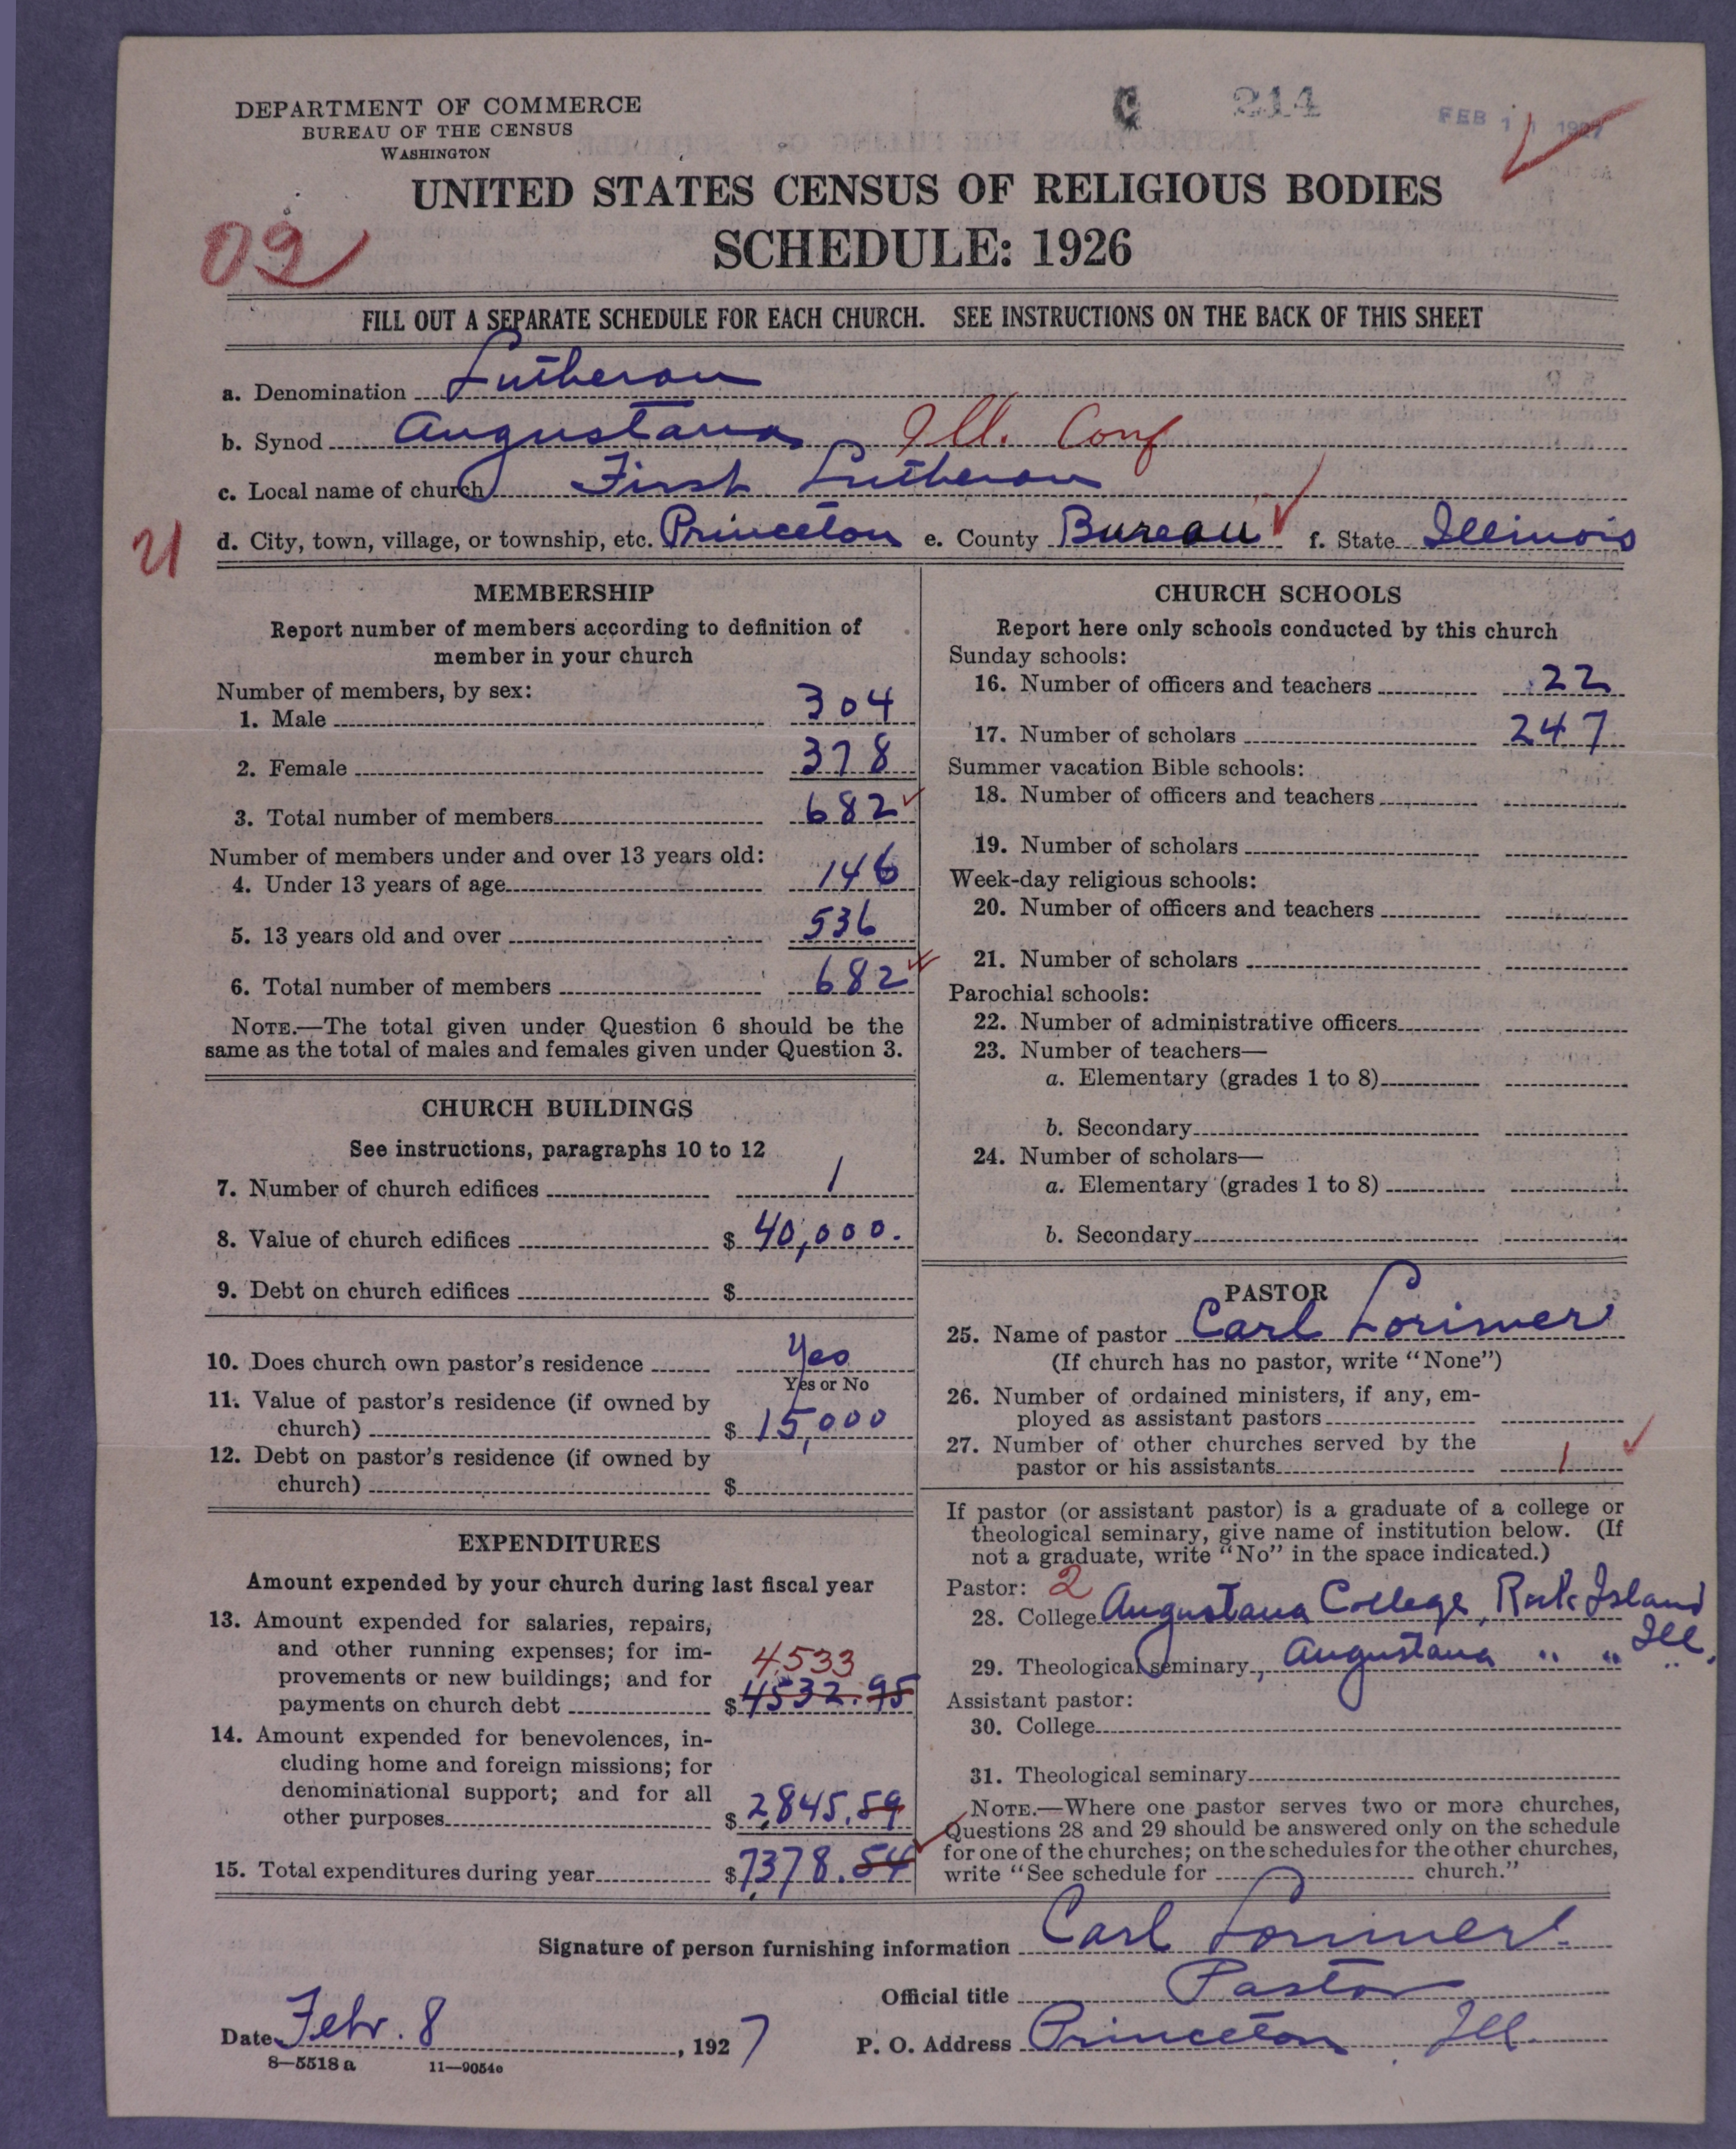 DEPARTMENT OF COMMERCE
BUREAU OF THE CENSUS
WASHINGTON
C 214
FEB 11 1927
UNITED STATES CENSUS OF RELIGIOUS BODIES
SCHEDULE: 1926
02
FILL OUT A SEPARATE SCHEDULE FOR EACH CHURCH. SEE INSTRUCTIONS ON THE BACK OF THIS SHEET
a. Denomination Lutheran
b. Synod Augustana Ill. Conf
c. Local name of church First Lutheran
d. City, town, village, or township, etc. Princeton e. County Bureau f. State Illinois
MEMBERSHIP
Report number of members according to definition of
member in your church
Number of members, by sex:
1. Male 304
2. Female 378
3. Total number of members 682
Number of members under and over 13 years old:
4. Under 13 years of age 146
5. 13 years old and over 536
6. Total number of members 682
NOTE.—The total given under Question 6 should be the
same as the total of males and females given under Question 3.
CHURCH BUILDINGS
See instructions, paragraphs 10 to 12
7. Number of church edifices 1
8. Value of church edifices $ 40,000.
9. Debt on church edifices $
10. Does church own pastor's residence Yes
Yes or No
11. Value of pastor's residence (if owned by
church) $ 15,000
12. Debt on pastor's residence (if owned by
church) $
EXPENDITURES
Amount expended by your church during last fiscal year
13. Amount expended for salaries, repairs,
and other running expenses; for im-
provements or new buildings; and for 4533
payments on church debt $ 4532.95
14. Amount expended for benevolences, in-
cluding home and foreign missions; for
denominational support; and for all
other purposes $ 2,845.59
15. Total expenditures during year $ 7,378.54
CHURCH SCHOOLS
Report here only schools conducted by this church
Sunday schools:
16. Number of officers and teachers 22
17. Number of scholars 247
Summer vacation Bible schools:
18. Number of officers and teachers
19. Number of scholars
Week-day religious schools:
20. Number of officers and teachers
21. Number of scholars
Parochial schools:
22. Number of administrative officers
23. Number of teachers—
a. Elementary (grades 1 to 8)
b. Secondary
24. Number of scholars—
a. Elementary (grades 1 to 8)
b. Secondary
PASTOR
25. Name of pastor Carl Lorimer
(If church has no pastor, write "None")
26. Number of ordained ministers, if any, em-
ployed as assistant pastors
27. Number of other churches served by the
pastor or his assistants 1
If pastor (or assistant pastor) is a graduate of a college or
theological seminary, give name of institution below. (If
not a graduate, write "No" in the space indicated.)
Pastor: 2
28. College Augustana College, Rock Island
Ill.
29. Theological seminary, Augustana " " "
Assistant pastor:
30. College
31. Theological seminary
NOTE.—Where one pastor serves two or more churches,
Questions 28 and 29 should be answered only on the schedule
for one of the churches; on the schedules for the other churches,
write "See schedule for church."
Signature of person furnishing information Carl Lorimer
Official title Pastor
Date Febr. 8, 1927 P. O. Address Princeton Ill.
8—5518 a 11—9054c